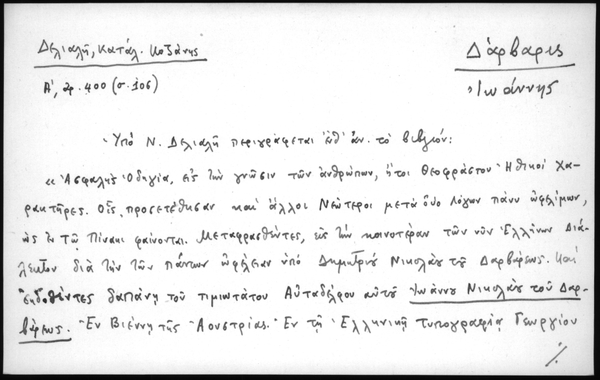 Δελιαλῆ, Κατάλ. Κοζάνης
Δάρβαρις
Ἰωάννης
Α', ἀρ. 400 (σ. 106)
Ὑπὸ Ν. Δελιαλῆ περιγράφεται ἐνθ' ἀν. τὸ βιβλίον:
« Ἀσφαλὴς Ὁδηγία, εἰς τὴν γνῶσιν τῶν ἀνθρώπων, ἤτοι Θεοφράστου Ἠθικοὶ Χα-
ρακτῆρες. Οἷς προσετέθησαν καὶ ἄλλοι Νεώτεροι μετὰ δύο λόγων πάνυ ὠφελίμων,
ὡς ἐν τῷ Πίνακι φαίνονται. Μεταφρασθέντες, εἰς τὴν κοινοτέραν τῶν νῦν Ἑλλήνων Διά-
λεκτον διὰ τὴν τῶν πάντων ὠφέλειαν ὑπὸ Δημητρίου Νικολάου τοῦ Δαρβάρεως. Καὶ
ἐκδοθέντες δαπάνῃ τοῦ τιμιωτάτου Αὐταδέλφου αὐτοῦ Ἰωάννου Νικολάου τοῦ Δαρ-
βάρεως. Ἐν Βιέννῃ τῆς Ἀουστρίας. Ἐν τῇ Ἑλληνικῇ τυπογραφίᾳ Γεωργίου
./.